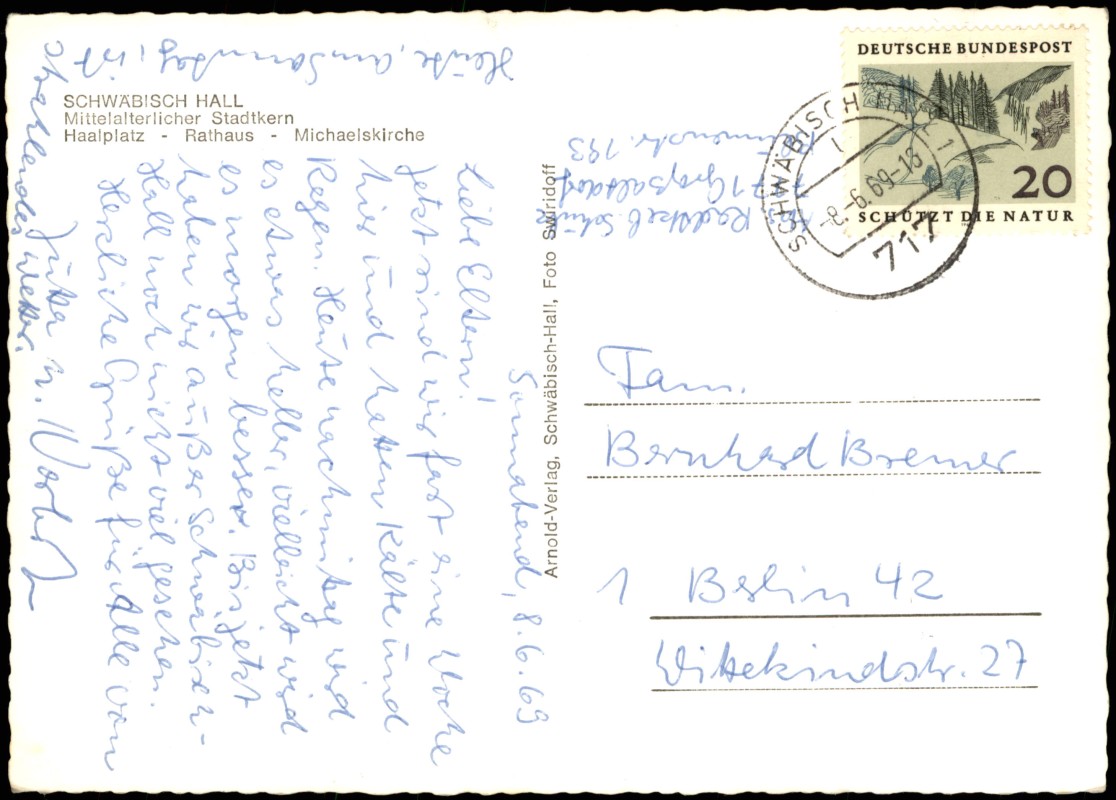 SCHWÄBISCH HALL
Mittelalterlicher Stadtkern
Haalplatz - Rathaus - Michaelskirche
Sonnabend, 8.6.69
Liebe Eltern!
Jetzt sind wir fast eine Woche
hier und hatten Kälte und
Regen. Heute nachmittag wird
es etwas heller, vielleicht wird
es morgen besser. Bis jetzt
haben wir außer Schwäbisch-
Hall noch nicht viel gesehen.
Herzliche Grüße für alle von
Jutta u. Norbert
Heute, am Sonntag, ist
strahlendes Wetter.
Arnold-Verlag, Schwäbisch-Hall, Foto Swiridoff
b. Schütz
771 Großaltdorf
193
DEUTSCHE BUNDESPOST
20
SCHÜTZT DIE NATUR
SCHWÄBISCH HALL 1
-8.-6.69-18
717
Fam.
Bernhard Bremer
1 Berlin 42
Wittekindstr. 27